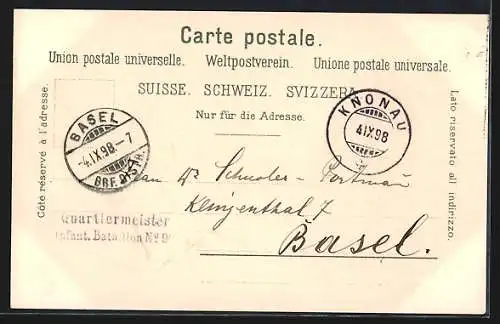 Carte postale.
Union postale universelle. Weltpostverein. Unione postale universale.
SUISSE. SCHWEIZ. SVIZZERA.
Nur für die Adresse.
Côté réservé à l'adresse.
Lato riservato all indirizzo.
BASEL
4.IX.98-7
BRF. DISTR.
KNONAU
4 IX 98
Klingenthal 7
Basel.
Quartiermeister
Infant. Bataillon No 9